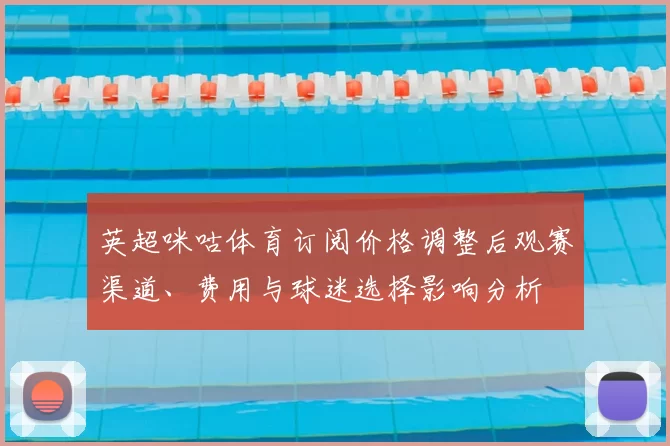 英超咪咕体育订阅价格调整后观赛
渠道、费用与球迷选择影响分析